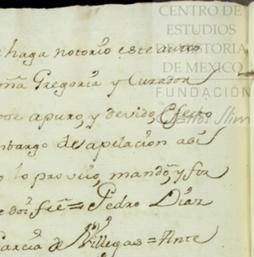 CENTRO DE
ESTUDIOS
DE HISTORIA
DE MEXICO
FUNDACIÓN
Carlos Slim
haga notorio este auto
ña Gregoria y Curador
apuro, y devido efecto
mbargo de apelacion asi
lo proveio, mandó, y for
doi fiê = Pedro Diaz
Garcia de Villegas = Ante